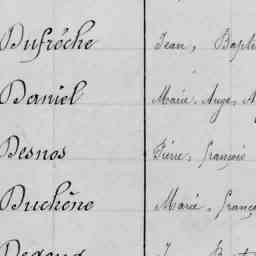 Dufrêche Jean, Bapti
Daniel Marie, Ange, A
Desnos Pierre, françois
Duchêne Marie, franço